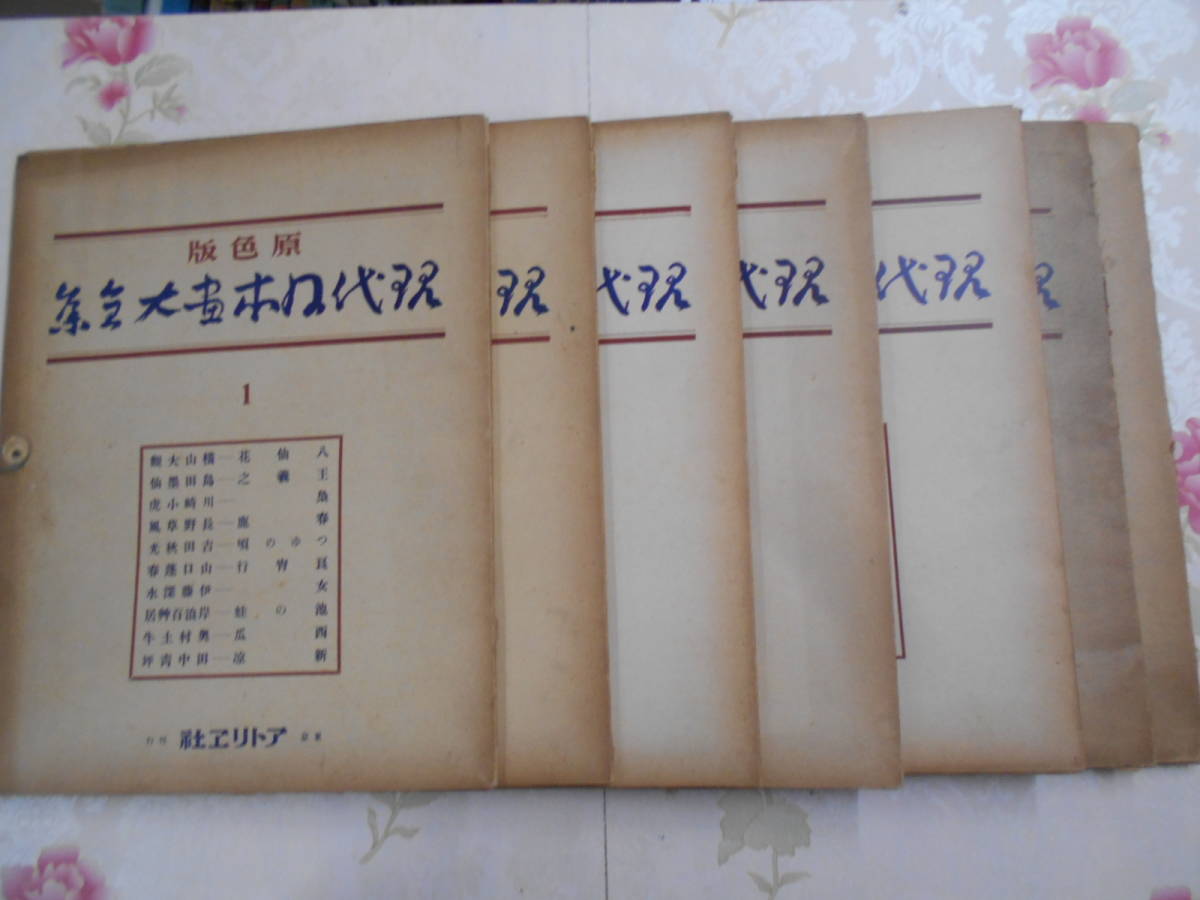 原色版
現代日本畫大全集
1
八仙花―横山大觀
王羲之―島田墨仙
梟―川崎小虎
春鹿―長野草風
つゆの頃―吉田秋光
良宵行―山口蓬春
女―伊藤深水
池の蛙―岸浪百艸居
西瓜―奥村土牛
新涼―田中青坪
東京 アトリヱ社 刊行
現
現代
現代
現代
現